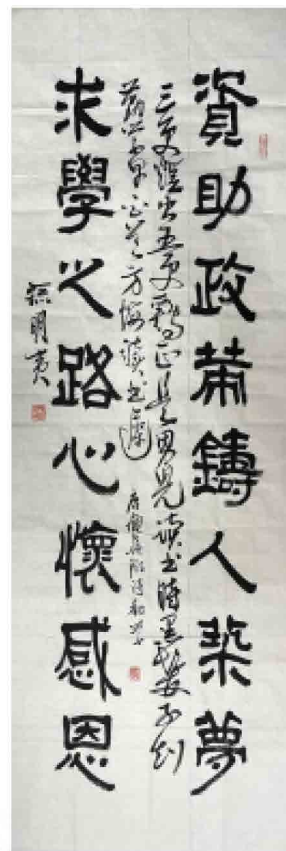 資助政策鑄人築夢
三更燈火五更鷄正是男兒讀書時黑髮不知
勤學早白首方悔讀書遲
唐顏真卿詩勸學
求學之路心懷感恩